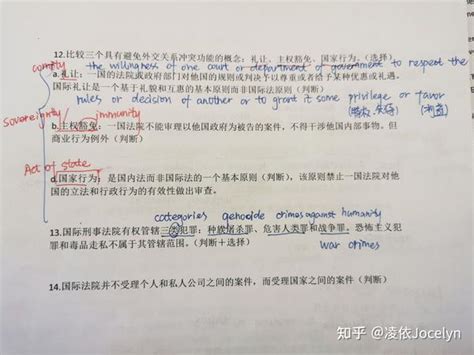 12.比较三个具有避免外交关系冲突功能的概念：礼让、主权豁免、国家行为。（选择）
comity
the willingness of one court or department of government to respect the
a.礼让：一国的法院或政府部门对他国的规则或判决予以尊重或者给予某种优惠或礼遇。
国际礼让是一个基于礼貌和互惠的基本原则而非国际法原则（判断）
rules or decision of another or to grant it some privilege or favor
sovereignty
immunity
b.主权豁免：一国法院不能审理以他国政府被告的案件，不得干涉他国内部事物。但
商业行为例外（判断）
Act of state
d.国家行为：是国内法而非国际法的一个基本原则（判断），该原则禁止一国法院对他
国的立法和行政行为的有效性做出审查。
categories genocide crimes against humanity
13.国际刑事法院有权管辖三类犯罪：种族屠杀罪、危害人类罪和战争罪。恐怖主义犯
罪和毒品走私不属于其管辖范围。（判断+选择）
war crimes
14.国际法院并不受理个人和私人公司之间的案件，而受理国家之间的案件（判断）
知乎 @凌依Jocelyn